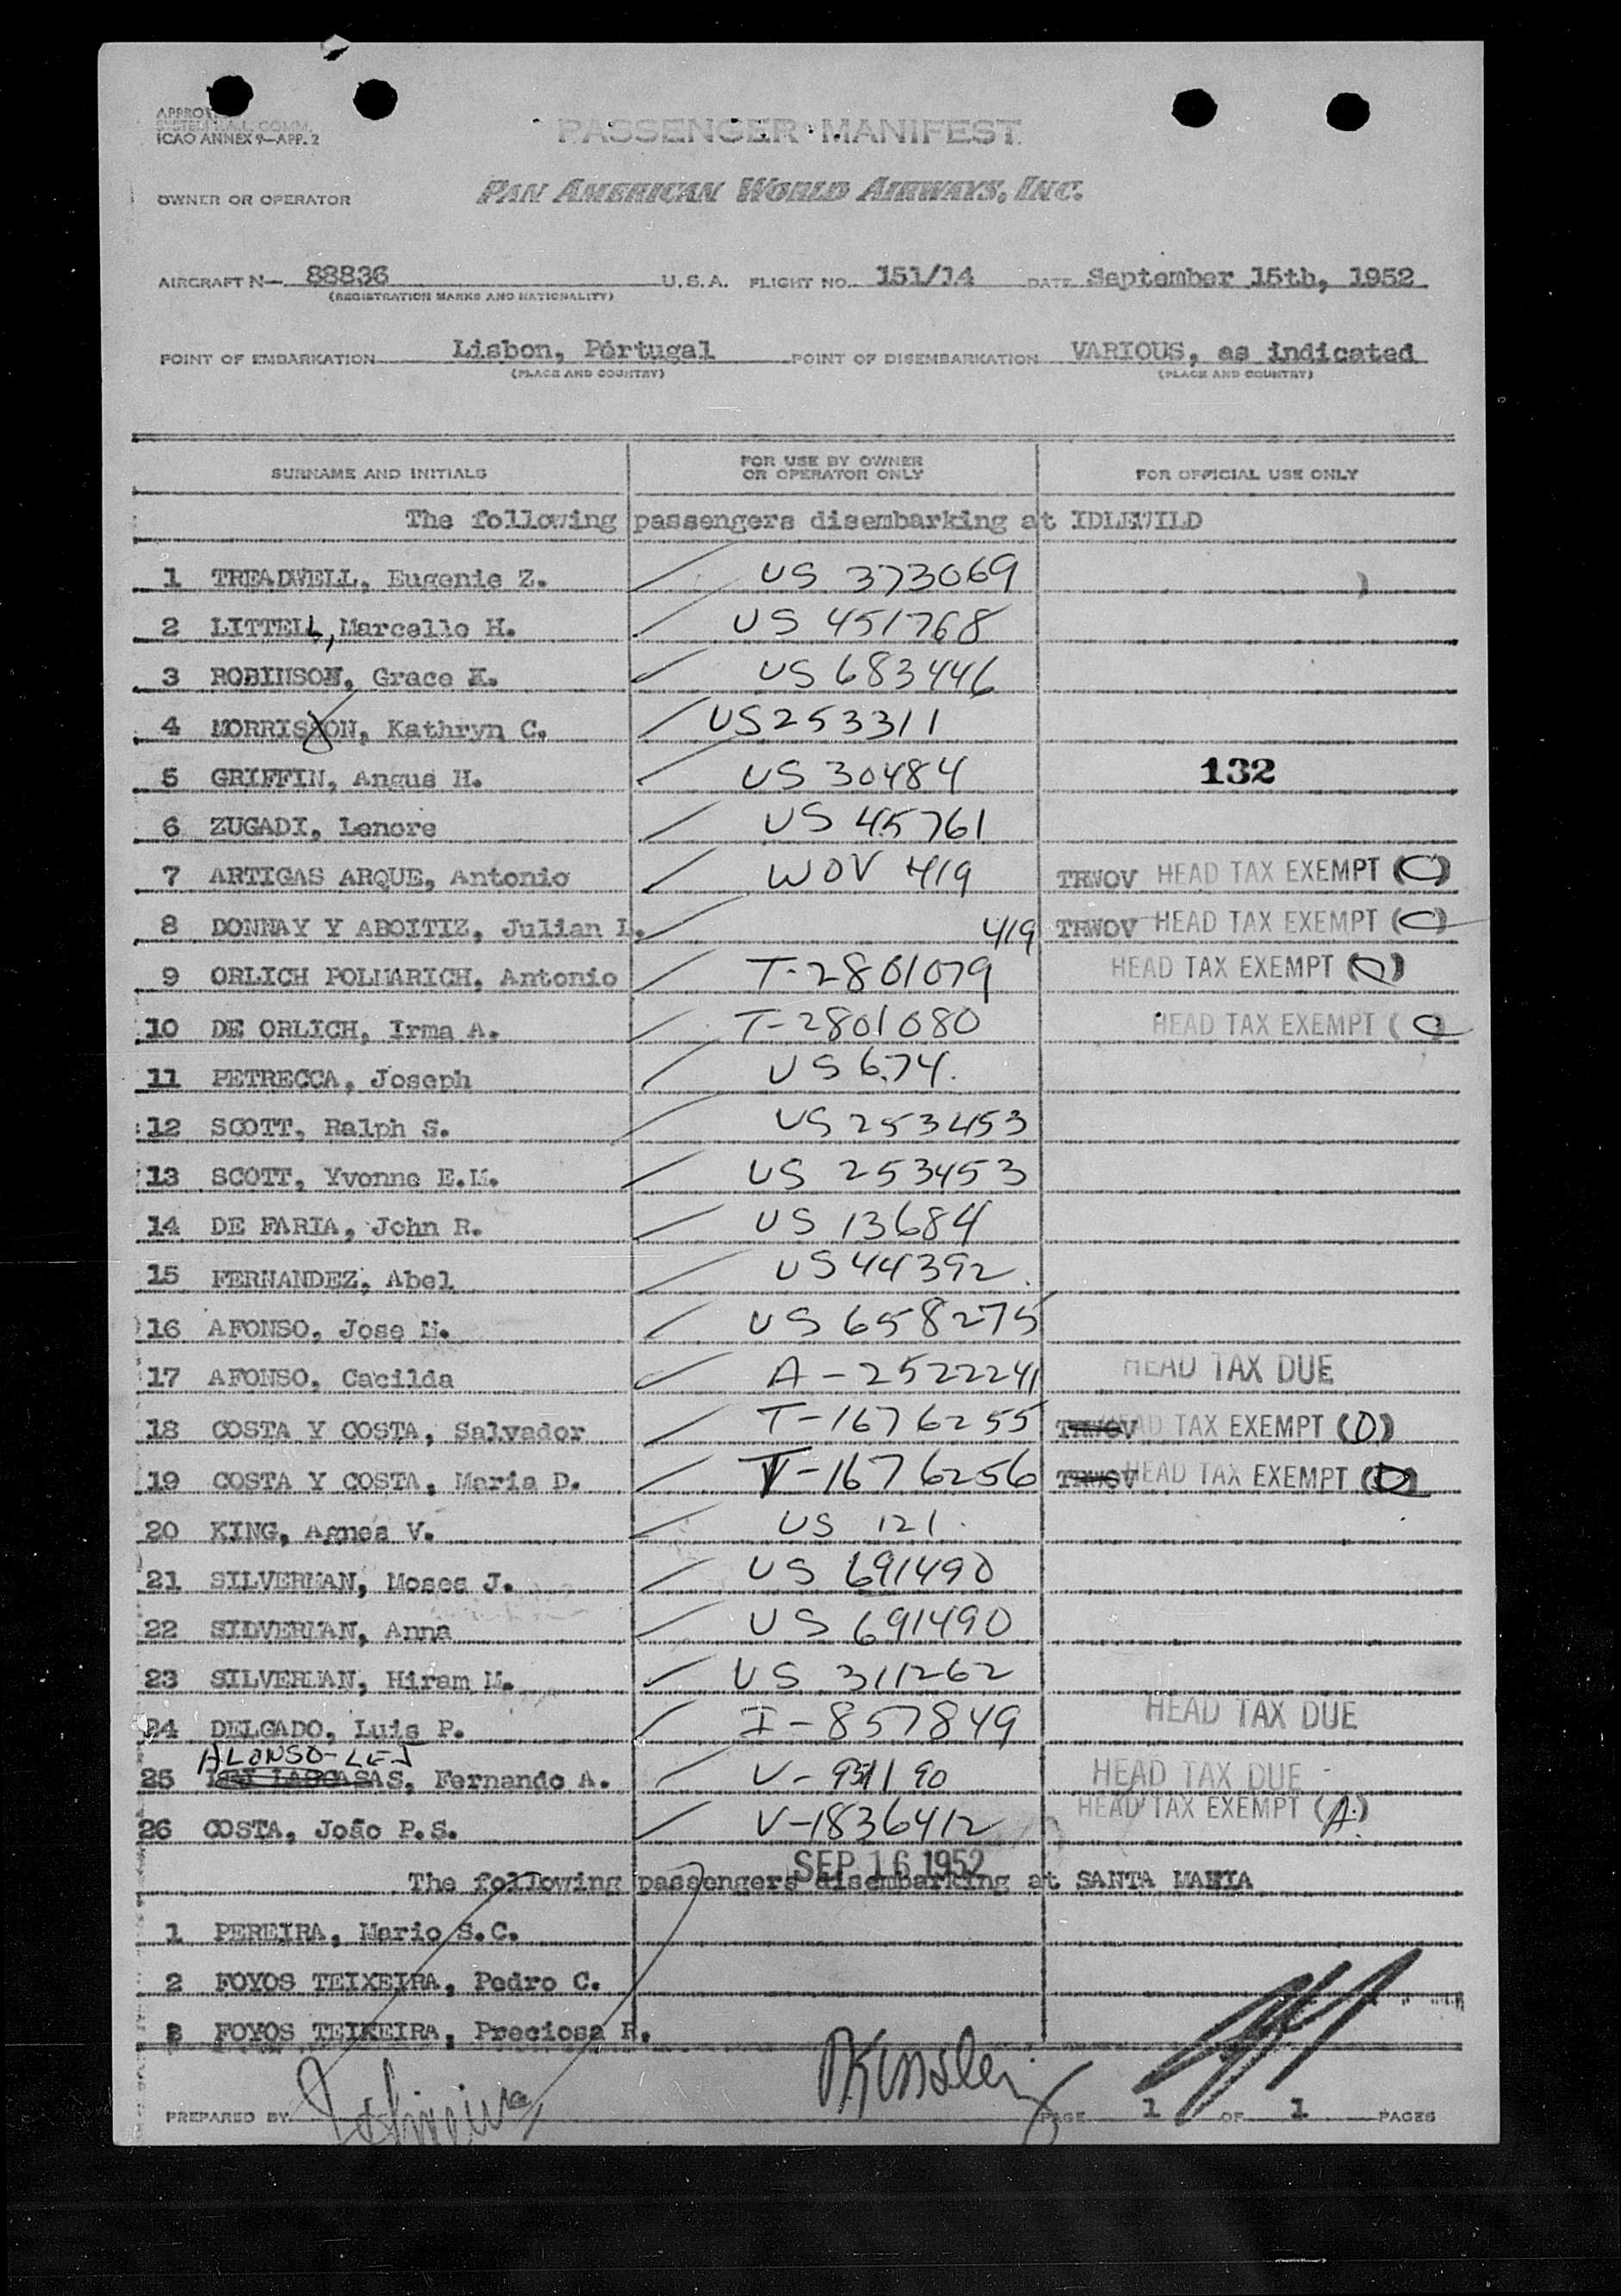 ICAO ANNEX 9—APP. 2
PASSENGER MANIFEST
OWNER OR OPERATOR PAN AMERICAN WORLD AIRWAYS, INC.
AIRCRAFT N— 88836 U.S.A. FLIGHT NO. 151/14 DATE September 15th, 1952
(REGISTRATION MARKS AND NATIONALITY)
POINT OF EMBARKATION Lisbon, Portugal POINT OF DISEMBARKATION VARIOUS, as indicated
(PLACE AND COUNTRY) (PLACE AND COUNTRY)
SURNAME AND INITIALS FOR USE BY OWNER OR OPERATOR ONLY FOR OFFICIAL USE ONLY
The following passengers disembarking at IDLEWILD
1 TREADWELL, Eugenie Z. US 373069
2 LITTELL, Marcelle H. US 451768
3 ROBINSON, Grace K. US 683446
4 MORRISON, Kathryn C. US 253311
5 GRIFFIN, Angus H. US 30484 132
6 ZUGADI, Lenore US 45761
7 ARTIGAS ARQUE, Antonio WOV 419 TRWOV HEAD TAX EXEMPT (C)
8 DONNAY Y ABOITIZ, Julian L. 419 TRWOV HEAD TAX EXEMPT (C)
9 ORLICH POLMARICH, Antonio T-2801079 HEAD TAX EXEMPT
10 DE ORLICH, Irma A. T-2801080 HEAD TAX EXEMPT (C)
11 PETRECCA, Joseph US 674.
12 SCOTT, Ralph S. US 253453
13 SCOTT, Yvonne E.M. US 253453
14 DE FARIA, John R. US 13684
15 FERNANDEZ, Abel US 44392
16 AFONSO, Jose M. US 658275
17 AFONSO, Cacilda A-2522241 HEAD TAX DUE
18 COSTA Y COSTA, Salvador T-1676255 TRWOV HEAD TAX EXEMPT (D)
19 COSTA Y COSTA, Maria D. T-1676256 TRWOV HEAD TAX EXEMPT (D)
20 KING, Agnes V. US 121
21 SILVERMAN, Moses J. US 691490
22 SILVERMAN, Anna US 691490
23 SILVERMAN, Hiram M. US 311262
24 DELGADO, Luis P. I-857849 HEAD TAX DUE
ALONSO-LEJ
25 LASCASAS, Fernando A. HEAD TAX DUE
26 COSTA, João P.S. V-1836412 HEAD TAX EXEMPT (A)
SEP 16 1952
The following passengers disembarking at SANTA MARIA
1 PEREIRA, Mario S.C.
2 FOYOS TEIXEIRA, Pedro C.
3 FOYOS TEIXEIRA, Preciosa R.
PREPARED BY PAGE 1 OF 1 PAGES